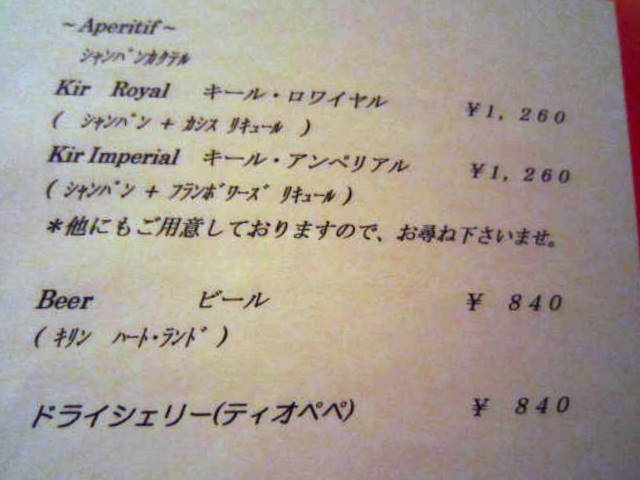 ~Aperitif~
ｼｬﾝﾊﾟﾝｶｸﾃﾙ
Kir Royal キール・ロワイヤル ￥1，260
( ｼｬﾝﾊﾟﾝ + ｶｼｽ ﾘｷｭｰﾙ )
Kir Imperial キール・アンペリアル ￥1，260
( ｼｬﾝﾊﾟﾝ + ﾌﾗﾝﾎﾞﾜｰｽﾞ ﾘｷｭｰﾙ )
＊他にもご用意しておりますので、お尋ね下さいませ。
Beer ビール ￥ 840
( ｷﾘﾝ ﾊｰﾄ･ﾗﾝﾄﾞ )
ドライシェリー(ティオペペ) ￥ 840